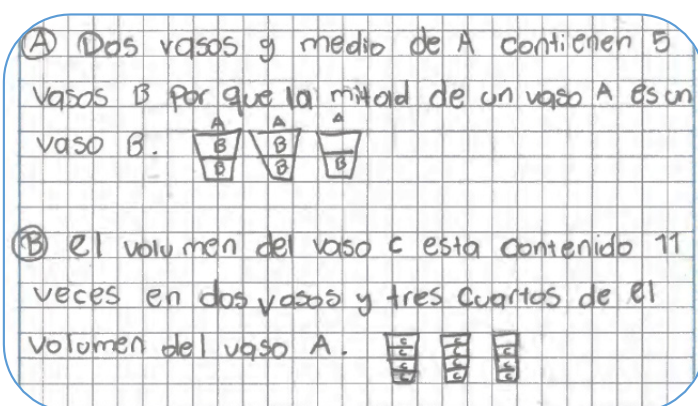 Ⓐ Dos vasos y medio de A contienen 5
vasos B por que la mitad de un vaso A es un
vaso B.
A A A
B B
B B B
Ⓑ el volumen del vaso c esta contenido 11
veces en dos vasos y tres cuartos de el
volumen del vaso A.
c c
c c c
c c c
c c c